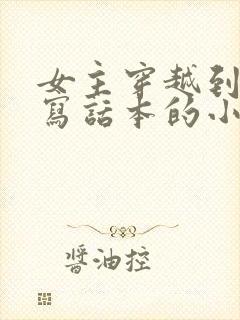 女主穿越到
寫話本的小
醬油控